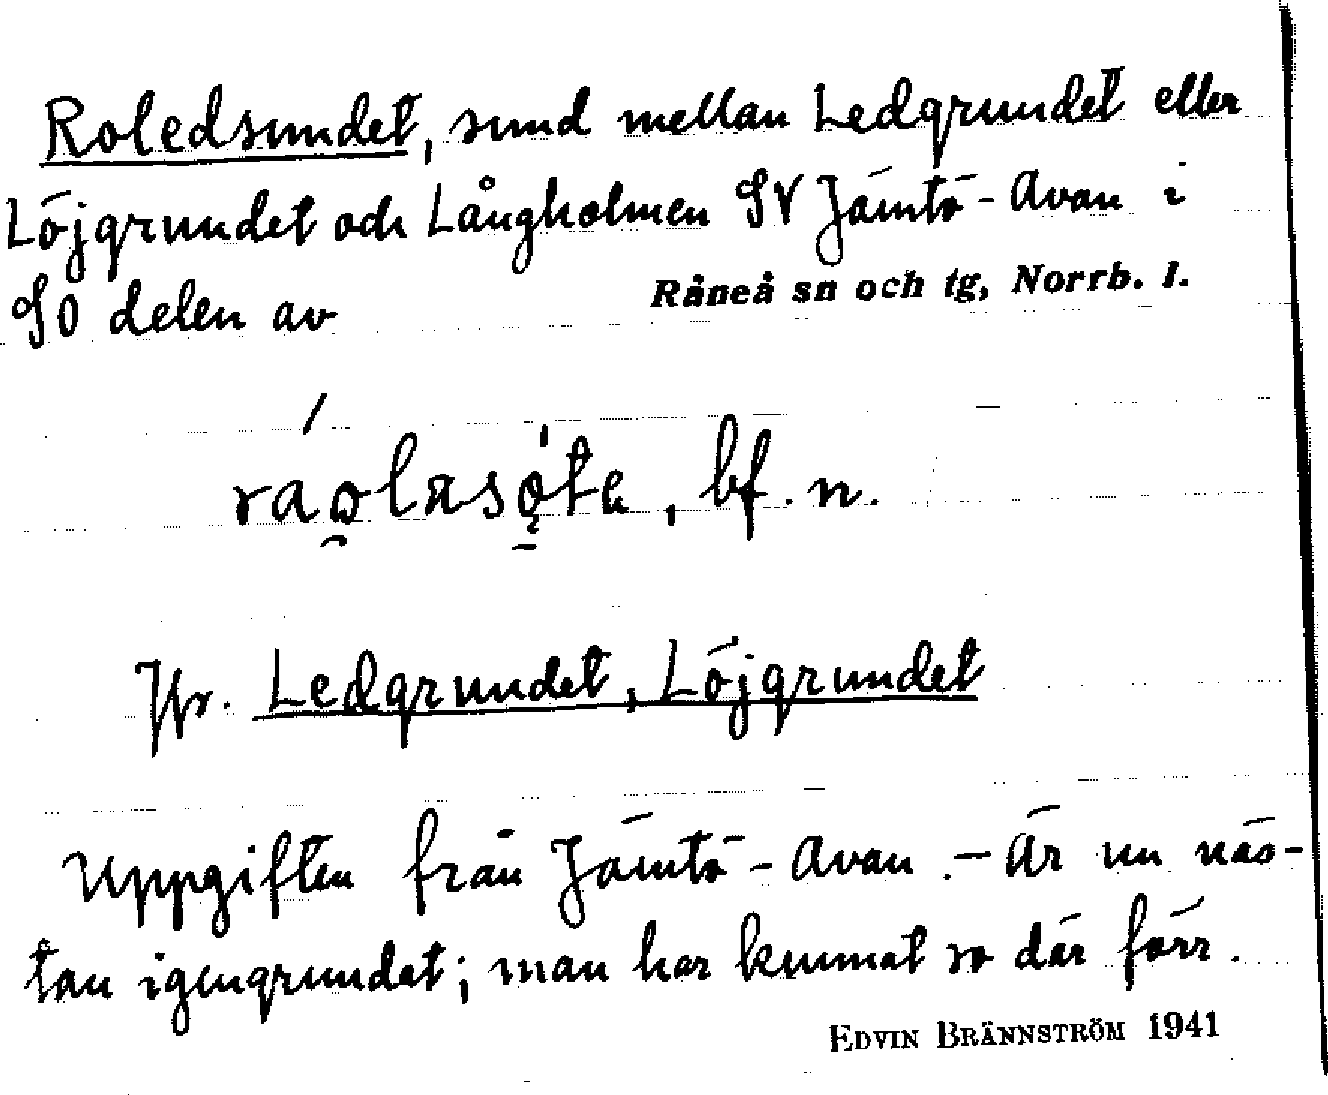 Roledsundet, sund mellan Ledgrundet eller
Löjgrundet och Långholmen SV Jämtö-Avan i
SO delen av Råneå sn och tg, Norrb. l.
, bf. n.
Jfr. Ledgrundet, Löjgrundet
Uppgiften från Jämtö-Avan. – Är nu näs-
tan igengrundat; man har kunnat ro där förr.
EDVIN BRÄNNSTRÖM 1941